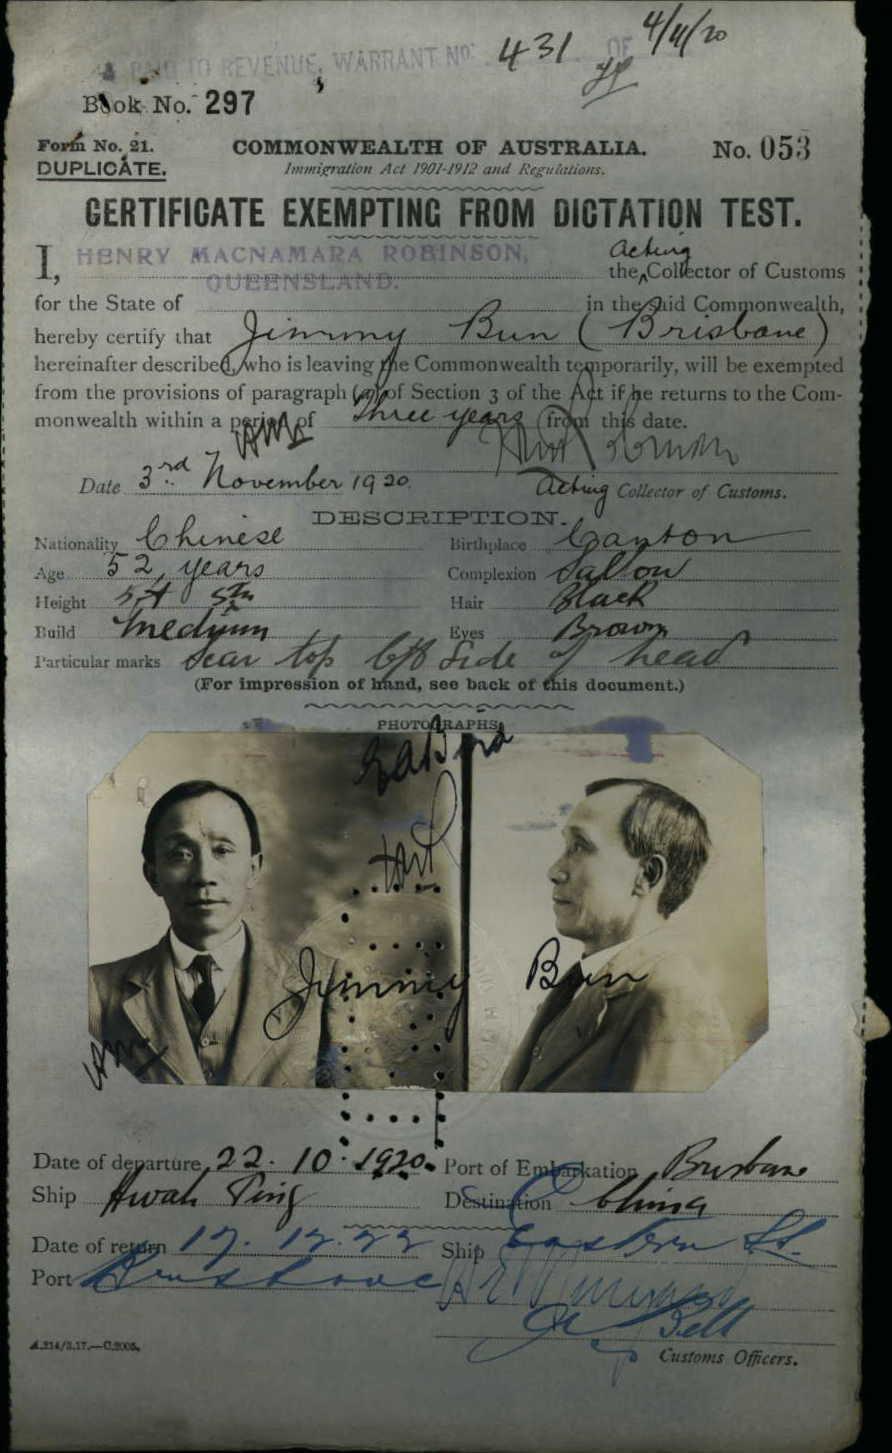 PAID TO REVENUE, WARRANT No. 431 OF 4/11/20
Book No. 297
Form No. 21.
DUPLICATE.
COMMONWEALTH OF AUSTRALIA.
Immigration Act 1901-1912 and Regulations.
No. 053
CERTIFICATE EXEMPTING FROM DICTATION TEST.
I, HENRY MACNAMARA ROBINSON, the Acting Collector of Customs
QUEENSLAND.
for the State of in the said Commonwealth,
hereby certify that Jimmy Bun (Brisbane)
hereinafter described, who is leaving the Commonwealth temporarily, will be exempted
from the provisions of paragraph (a) of Section 3 of the Act if he returns to the Com-
monwealth within a period of three years from this date.
Date 3rd November 1920.
Acting Collector of Customs.
DESCRIPTION.
Nationality Chinese Birthplace Canton
Age 52 years Complexion Sallow
Height 5ft 5in Hair Black
Build Medium Eyes Brown
Particular marks Scar top left side of head
(For impression of hand, see back of this document.)
PHOTOGRAPHS.
Jimmy Bun
Date of departure 22.10.1920. Port of Embarkation Brisbane
Ship Hwah Ping Destination China
Date of return 17.12.22 Ship Eastern
Port Brisbane
Bell
A.214/3.17.—C.2005.
Customs Officers.